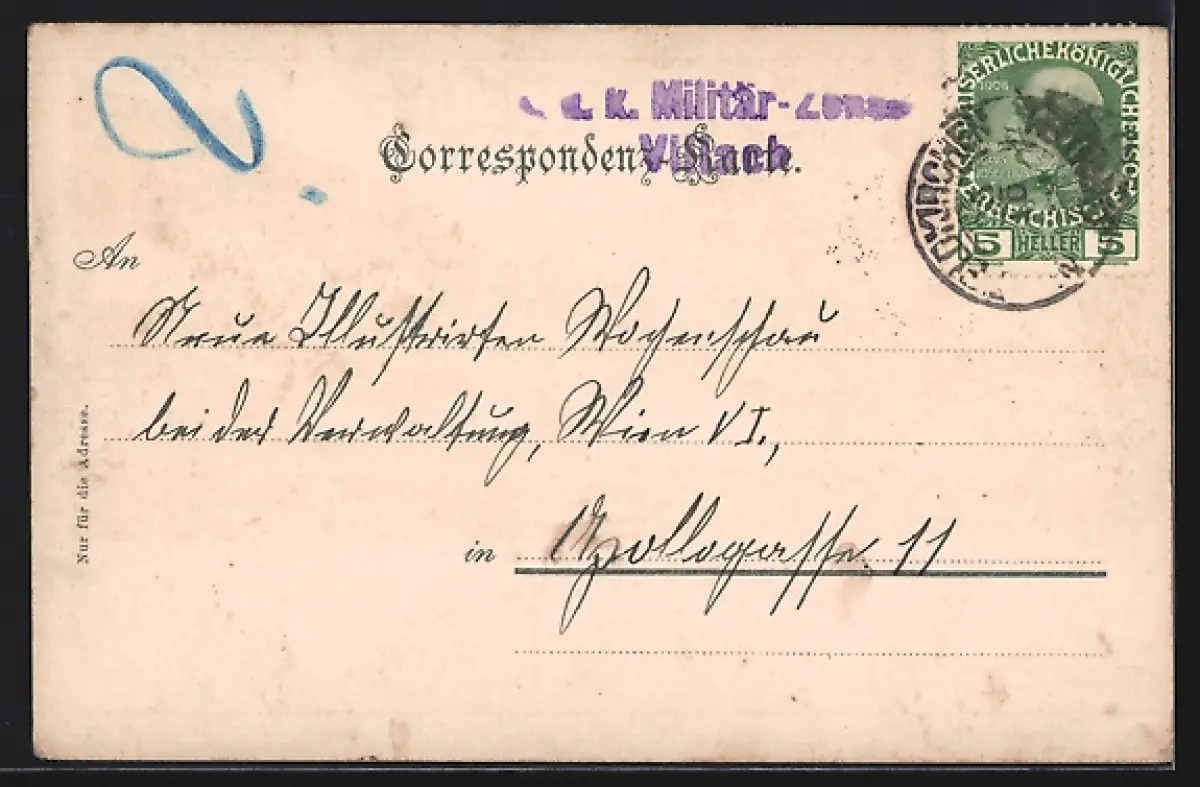 k. Militär-
Villach
Correspondenz-Karte.
An
Neue Illustrirten Wochenschau
bei der Verwaltung, Wien VI.,
in Apollogasse 11
Nur für die Adresse.
KAISERLICHE KÖNIGLICHE
ÖSTERREICHISCHE
1908
5 HELLER 5